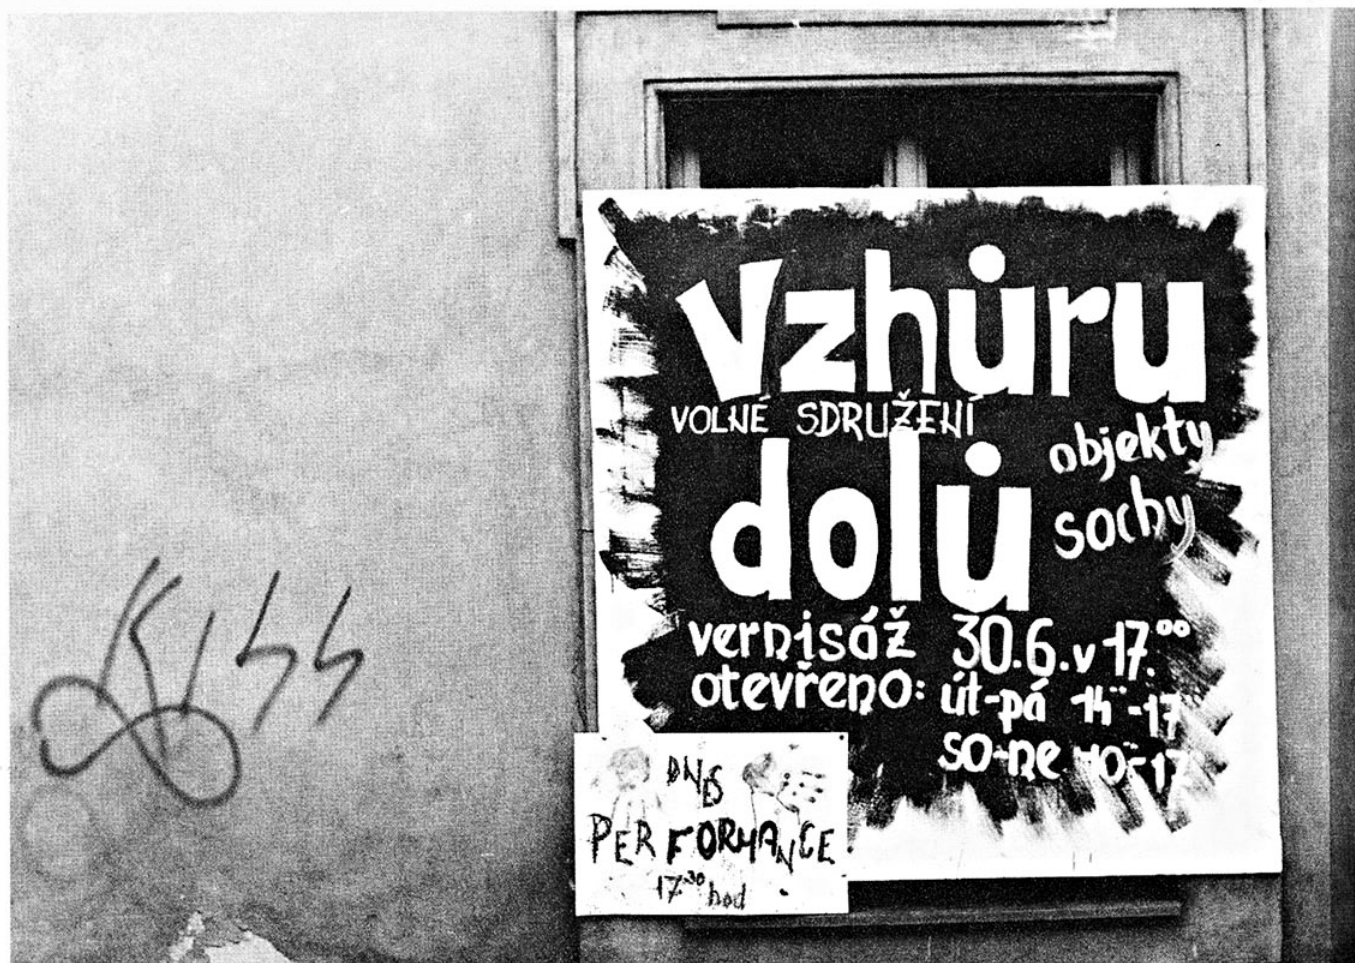 Kiss
vzhůru
VOLNÉ SDRUŽENÍ
dolů
objekty
sochy
vernisáž 30.6. v 17.00
otevřeno: út-pá 14-17
so-ne 10-17
DNES
PERFORMANCE
17.30 hod